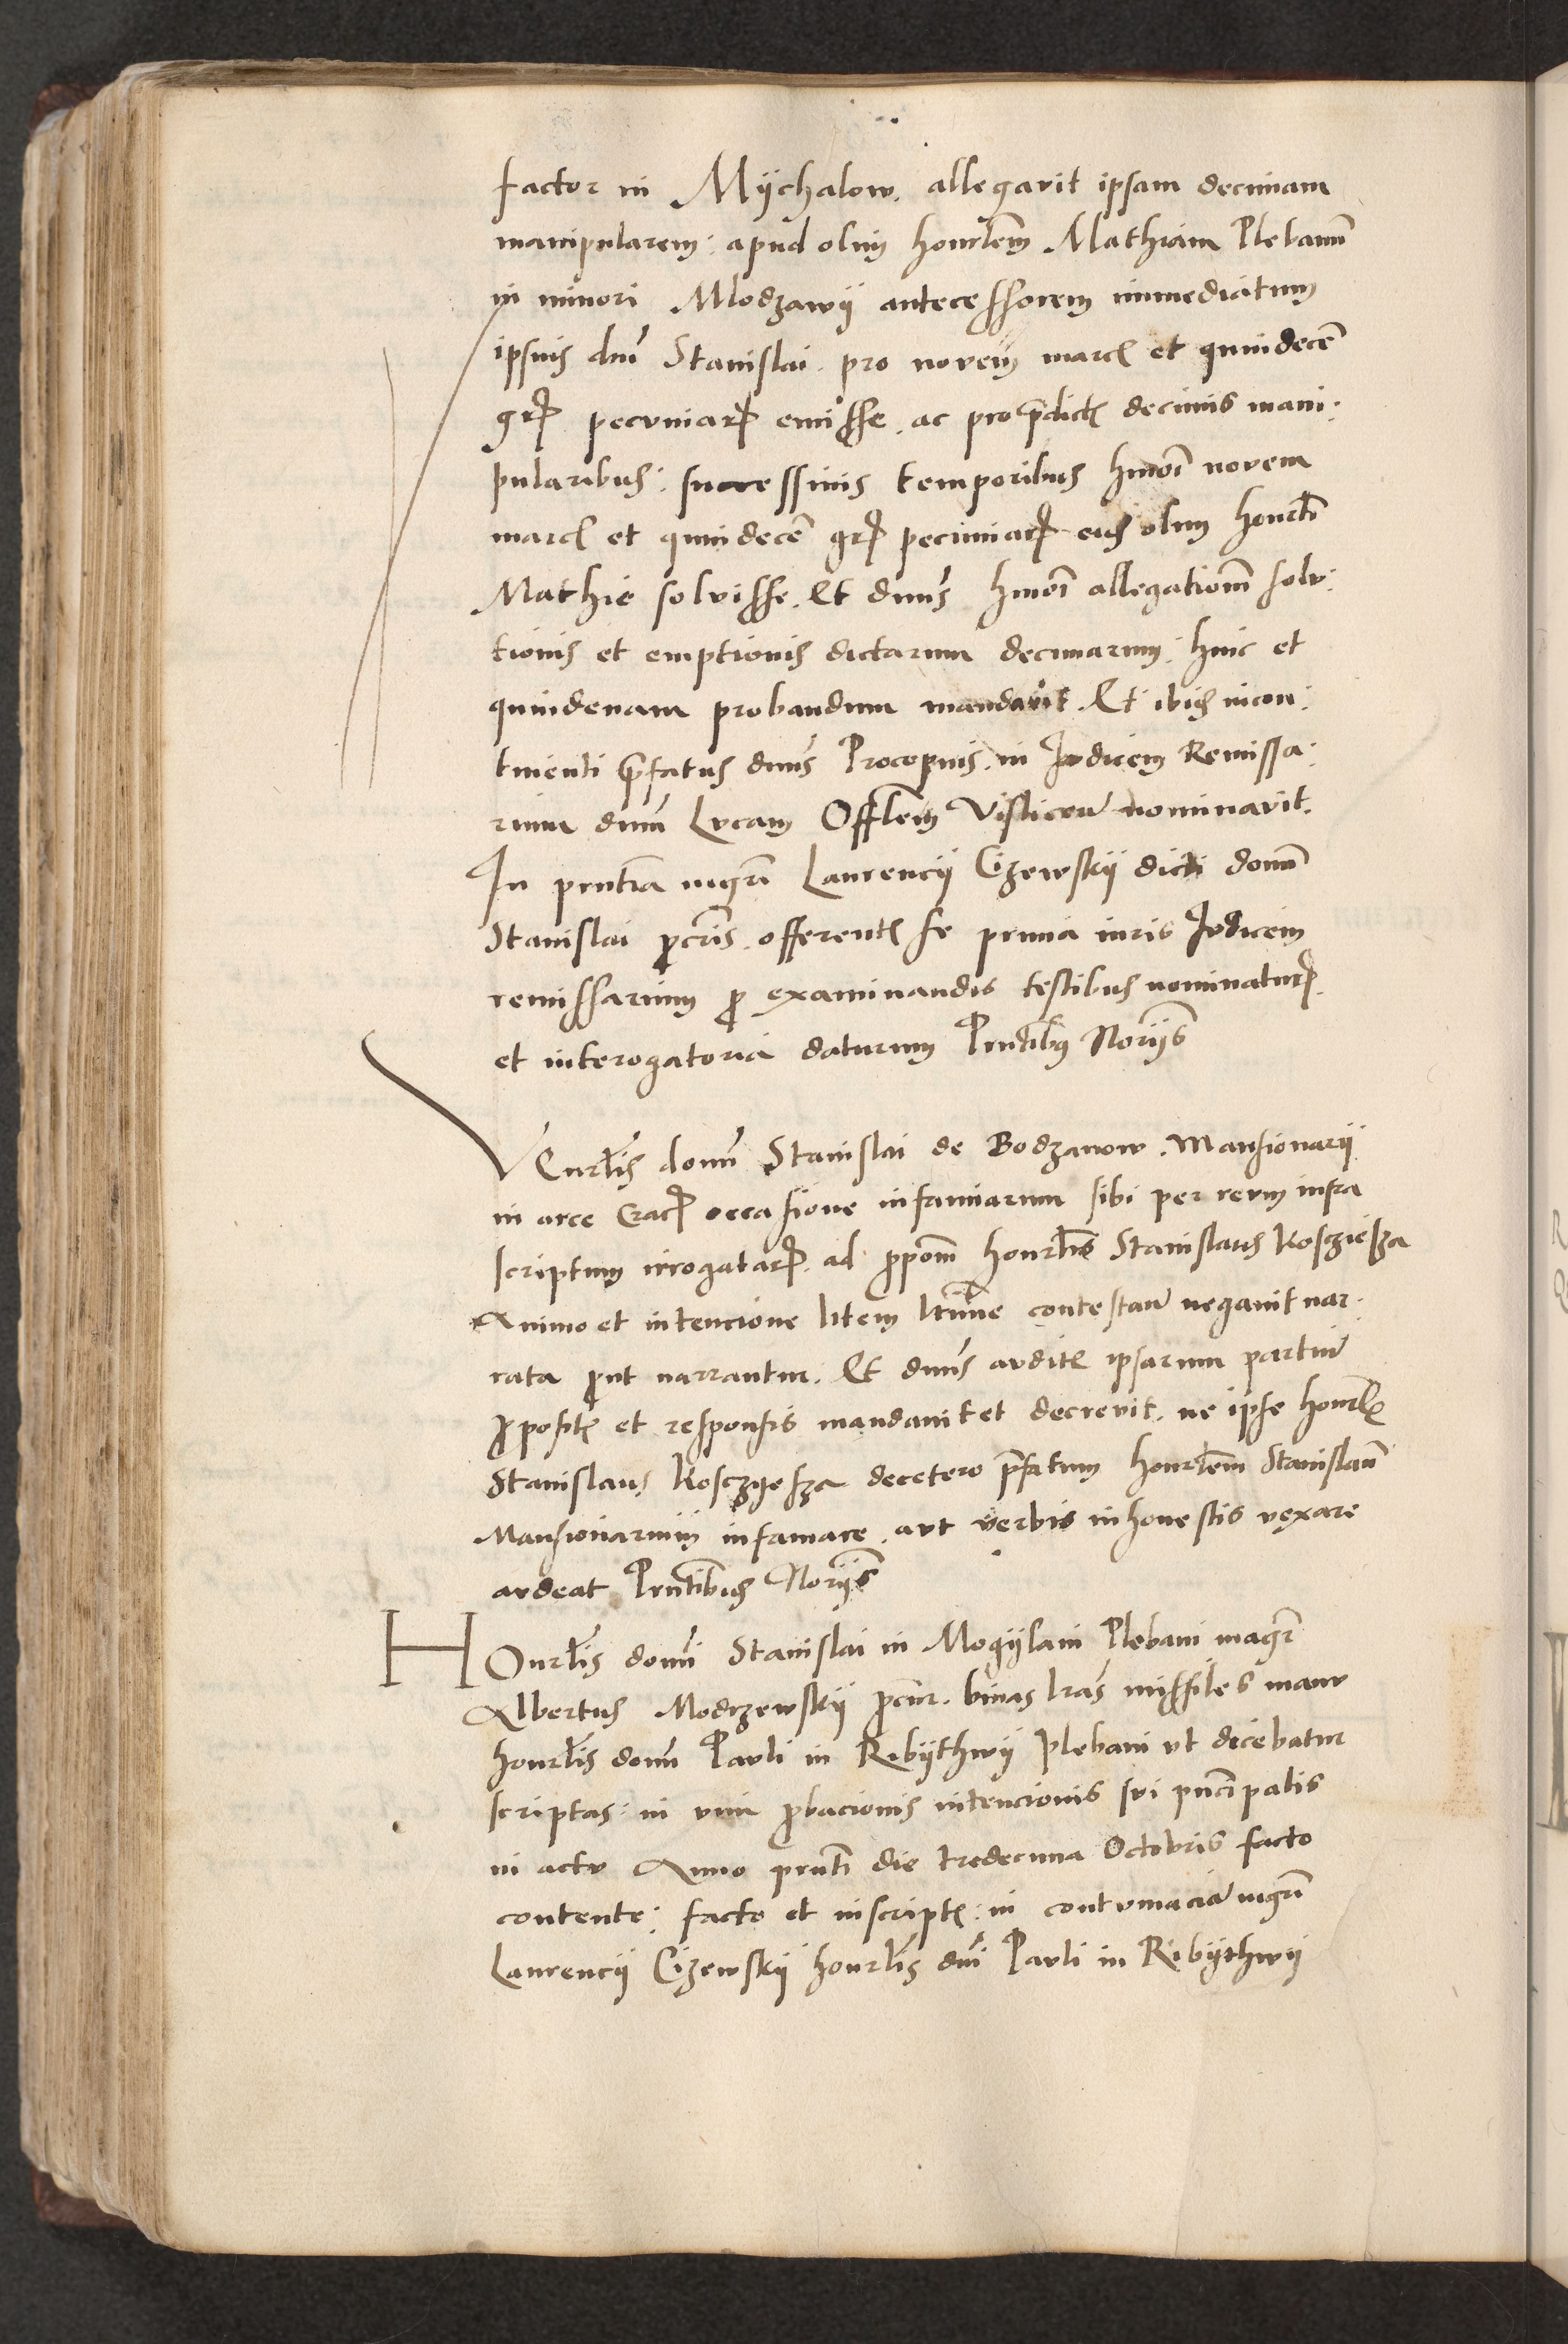 factor in Mÿchalow. allegavit ipsam decimam
manipularem: apud olim honrlem̄ Mathiam Plebanū
in minori Mlodzawÿ antecessorem immediatum
ipsius dn̄i Stanislai. pro novem marcꝭ et quindecē
grꝭ pecuniarꝭ emisse. ac pro p̄dictꝭ decimis mani:
pularibus: successivis temporibus hmōi novem
marcꝭ et quindecē grꝭ pecuniarꝭ olim honrli
Mathie solvisse. Et dnūs hmōi allegationem̄ solu:
tionis et emptionis dictarum decimarum: hinc et
quindenam probandum mandavit. Et ibiꝫ incon:
tinenti p̄fatus dnūs Procopius. in Judicem Remissa:
rium dnūm Lucam Offlem̄ Vislicen̄ nominavit.
In pn̄tia mgr̄i Laurencii Cizewskÿ dicti domī
Stanislai ꝓcr̄is. offerentꝭ se primā iuris Judicem
remissarium ꝓ examinandis testibus nominaturꝭ.
et interogatoria daturum Pn̄tibꝰ Noriis̄
VEnrlīs domī Stanislai de Bodzanow. Mansionarii
in arce Cracꝭ occasione infamiarum sibi per reum infra
scriptum irrogatarꝭ. ad ꝓpom̄ honrlīs Stanislaus Koscziesza
Animo et intencione litem ltīme contestan̄ negavit nar:
rata ꝓut narrantur. Et dnūs auditꝭ ipsarum partiū
ꝓpositꝭ et responsis mandavit et decrevit. ne ipse honrlꝭ
Stanislaus Kosczyesza decetero p̄fatum honrlem̄ Stanislaū
Mansionarium infamare. aut verbis inhonestis vexare
audeat Pn̄tibus Noriis̄
HOnrlīs domī Stanislai in Mogÿlani Plebani magr̄
Albertus Modrzewskÿ ꝓcur̄. binas lrās missiles manu
honrlīs domī Pauli in Ribÿthwÿ Plebani ut dicebatur
scriptas: in vim ꝓbacionis intencionis sui principalis
in actu Anno pn̄ti die tredecima Octobris facto
contente: facto et inscriptꝭ: in contumaciā mgr̄i
Laurencii Cizewskÿ honrlīs dn̄i Pauli in Ribÿthwÿ